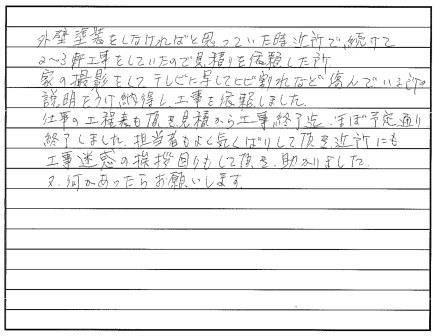 外壁塗装をしなければと思っていた時近所で、続けて
2〜3軒工事をしていたので見積りを依頼した所
家の撮影をしてテレビに写してヒビ割れなど傷んでいる所の
説明をうけ納得し、工事を依頼しました。
仕事の工程表も頂き見積から工事終了迄、ほぼ予定通り
終了しました。担当者もよく気くばりして頂き近所にも
工事迷惑の挨拶回りもして頂き、助かりました。
又、何かあったらお願いします。